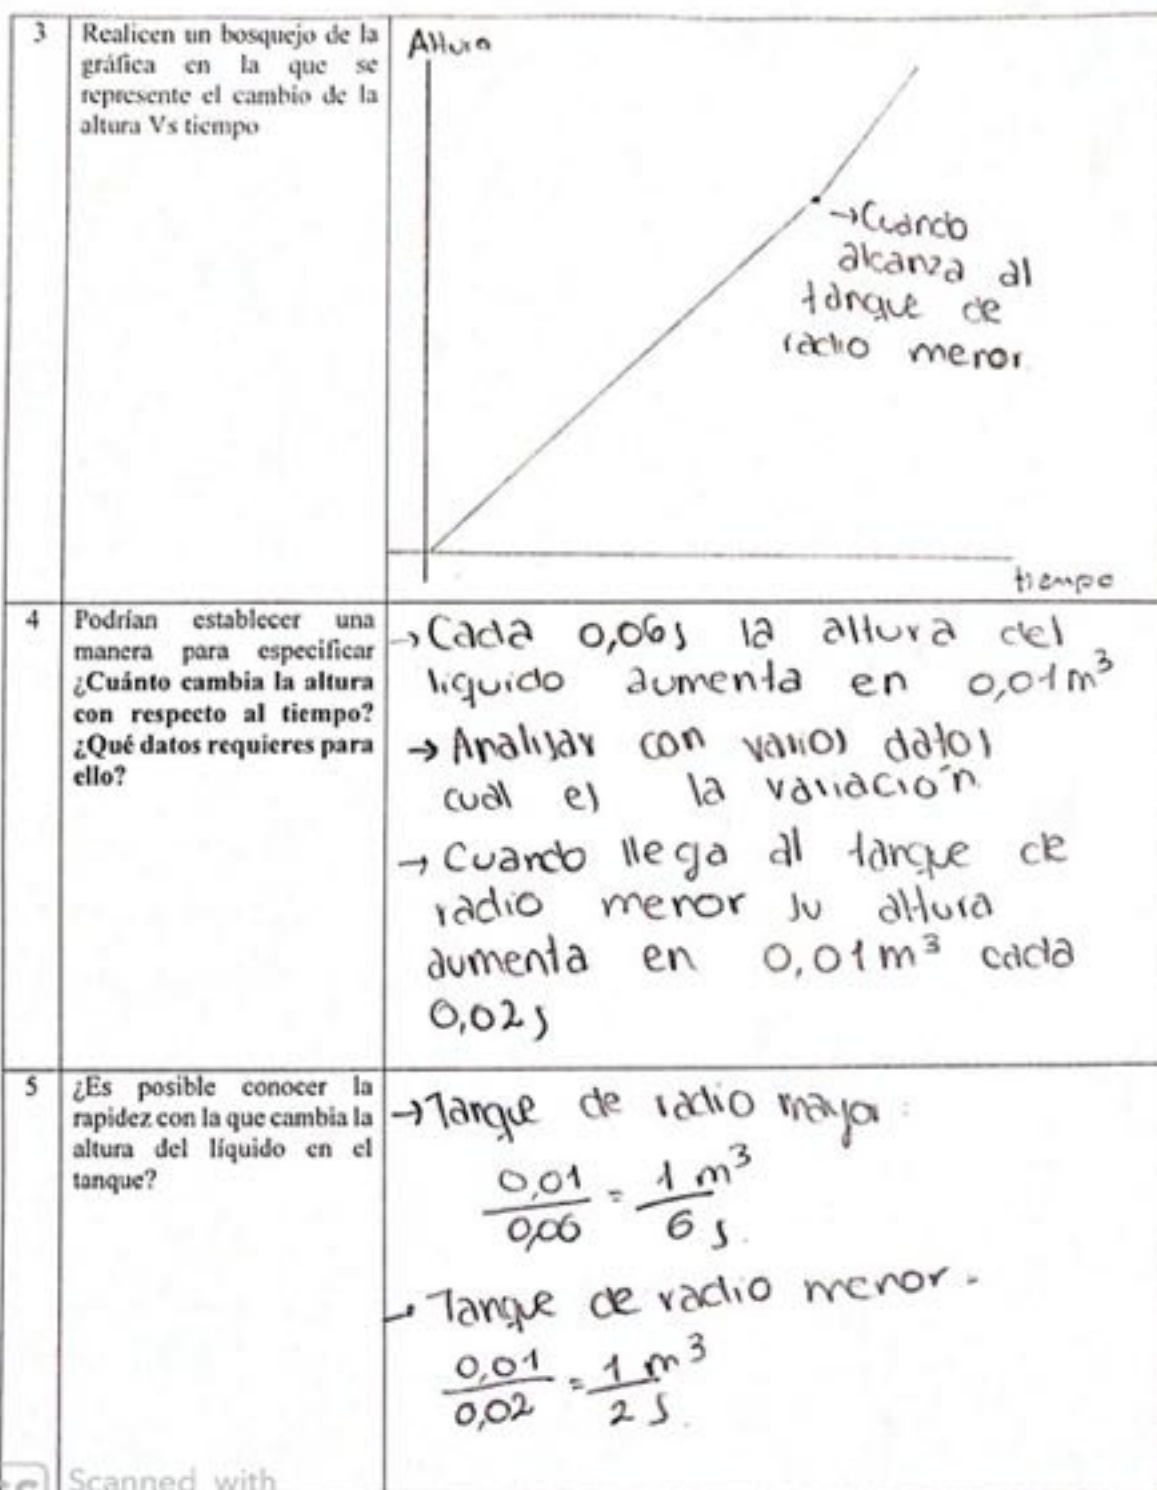 3
Realicen un bosquejo de la
gráfica en la que se
represente el cambio de la
altura Vs tiempo
Altura
→Cuando
alcanza al
tanque de
radio menor.
tiempo
4
Podrían establecer una
manera para especificar
¿Cuánto cambia la altura
con respecto al tiempo?
¿Qué datos requieres para
ello?
→ Cada 0,06s la altura del
líquido aumenta en 0,01m³
→ Analisar con varios datos
cual es la variación
→ Cuando llega al tanque de
radio menor su altura
aumenta en 0,01m³ cada
0,02s
5
¿Es posible conocer la
rapidez con la que cambia la
altura del líquido en el
tanque?
→Tanque de radio mayor:
0,01/0,06 = 1 m³/6 s.
→ Tanque de radio menor.
0,01/0,02 = 1 m³/2 s.
Scanned with